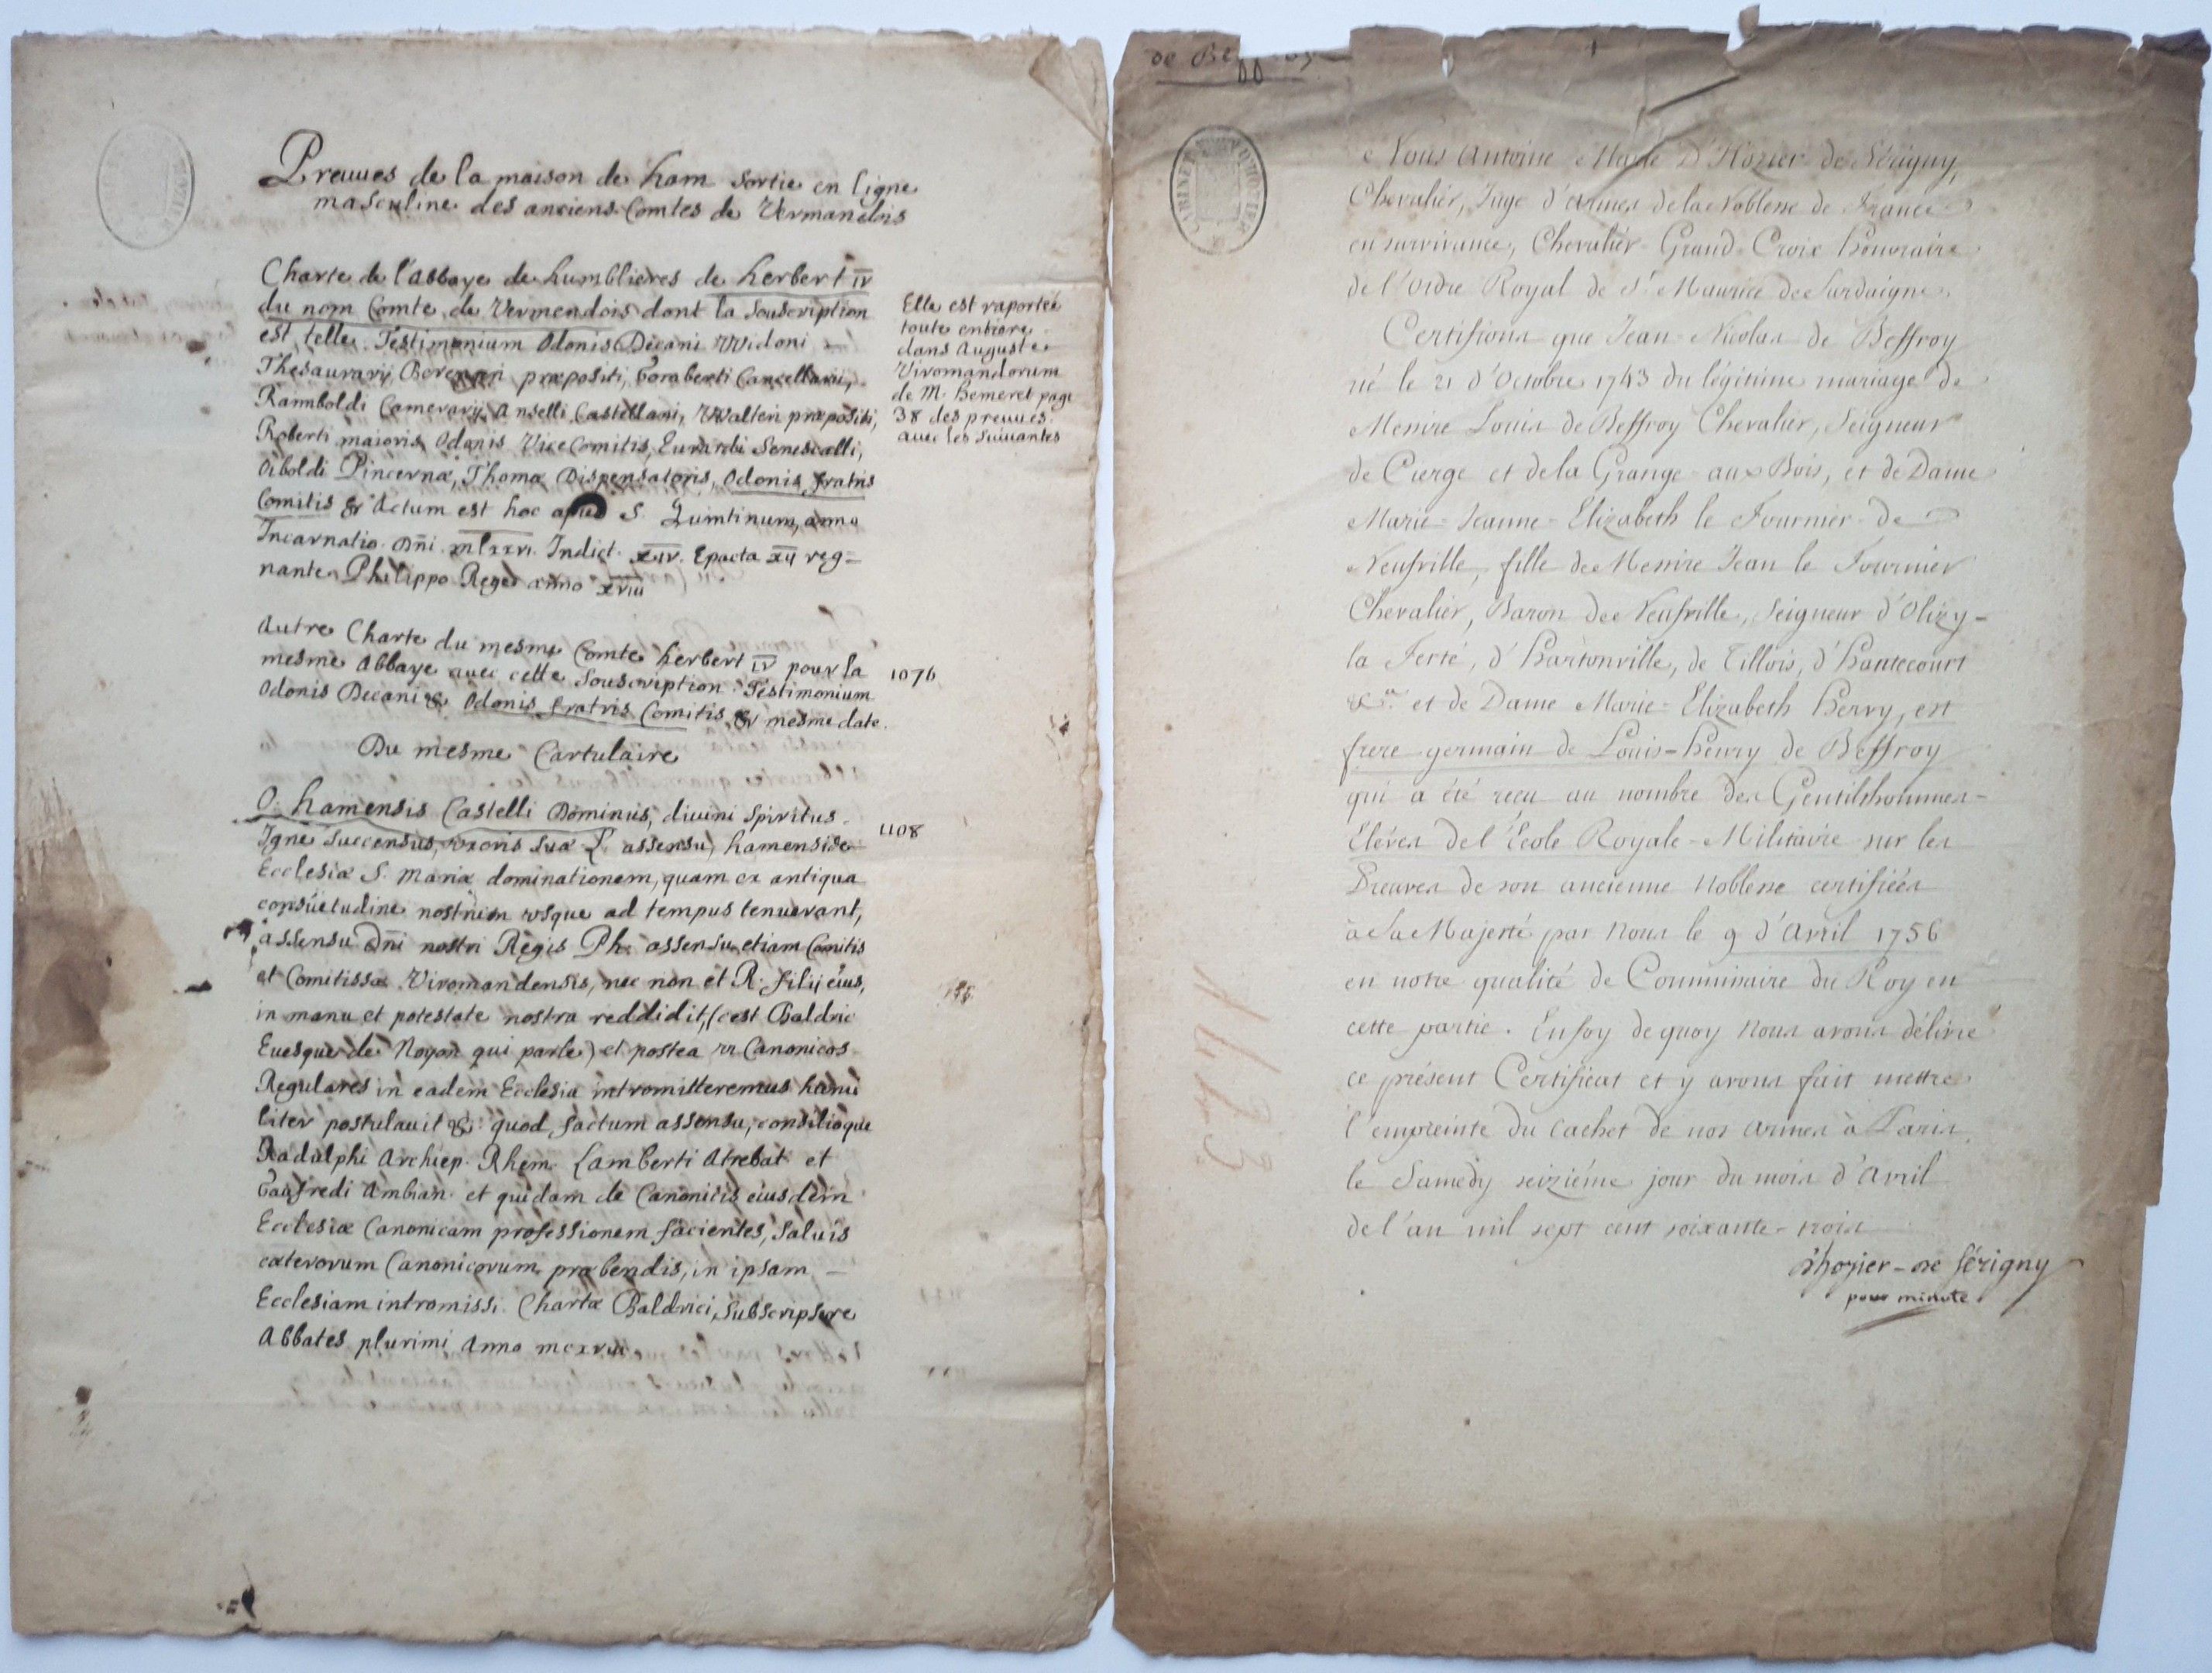 Preuues de la maison de ham sortie en ligne
masculine des anciens Comtes de Vermandois
Charte de l'abbaye de humblieres de herbert IV
du nom Comte de Vermendois dont la souscription
est telle. Testimonium Odonis Decani Widoni
Thesaurarij præpositi, Goraberti Cancellarii,
Ramboldi Camerarij Anselli Castellani, Walteri præpositi,
Roberti maioris Odonis Vice Comitis, Euurardi Senescalli,
Oiboldi Pincernæ, Thomæ Dispensatoris, Odonis fratris
Comitis & Actum est hoc apud S. Quintinum, anno
Incarnatio. Dñi. mlxxvi. Indict. XIV. Epacta XII reg=
nante Philippo Rege anno XVIII
Elle est raportée
toute entiere
dans Auguste
Viromandorum
de M. hemeret page
38 des preuues.
auec les suiuantes
Autre Charte du mesme Comte herbert IV pour la
mesme Abbaye auec cette souscription. Testimonium
Odonis Decani & Odonis fratris Comitis & mesme date.
1076
Du mesme Cartulaire
O. hamensis Castelli Dominus, diuini spiritus
Igne succensus, vxoris suæ L. assensu, hamensis
Ecclesiæ S. mariæ dominationem, quam ex antiqua
consuetudine nostrum vsque ad tempus tenuerant,
assensu Dñi nostri Regis Ph. assensu etiam Comitis
et Comitissæ Viromandensis, nec non et R. filij eius,
in manu et potestate nostra reddidit, (cest Baldric
Euesque de Noyon qui parle) et postea vt Canonicos
Regulares in eadem Ecclesia intromitteremus humi
liter postulauit &. quod factum assensu, consilioque
Radulphi Archiep. Rhem. Lamberti Atrebat et
Gaufredi Ambian. et quidam de Canonicis eiusdem
Ecclesiæ Canonicam professionem facientes, saluis
cæterorum Canonicorum præbendis, in ipsam
Ecclesiam intromissi. Chartæ Baldrici subscripsere
Abbates plurimi Anno
1108
de
CABINET D'HOZIER
Nous Antoine Marie D'Hozier de Sérigny,
Chevalier, Juge d'Armes de la Noblesse de France
en survivance, Chevalier-Grand-Croix honoraire
de l'Ordre Royal de St. Maurice de Sardaigne.
Certifions que Jean-Nicolas de Beffroy
né le 21 d'Octobre 1743 du légitime mariage de
Messire Louis de Beffroy Chevalier, Seigneur
de Cierge et de la Grange-aux-Bois, et de Dame
Marie-Jeanne-Elizabeth le Fournier-de
Neufville, fille de Messire Jean le Fournier
Chevalier, Baron de Neufville, Seigneur d'Olizy-
la Ferté, d'Hartonville, de Tillois, d'Hantecourt
&ca. et de Dame Marie-Elizabeth Henry, est
frere germain de Louis-henry de Beffroy
qui a été reçu au nombre des Gentilshommes-
Eléves de l'École Royale-Militaire sur les
Preuves de son ancienne Noblesse certifiées
à Sa Majesté par Nous le 9 d'Avril 1756
en notre qualité de Commissaire du Roy en
cette partie. En foy de quoy Nous avons délivré
ce présent Certificat et y avons fait mettre
l'empreinte du Cachet de nos armes à Paris,
le Samedy seiziéme jour du mois d'Avril
de l'an mil sept cent soixante-trois
d'hozier-de Sérigny
pour minute
1623